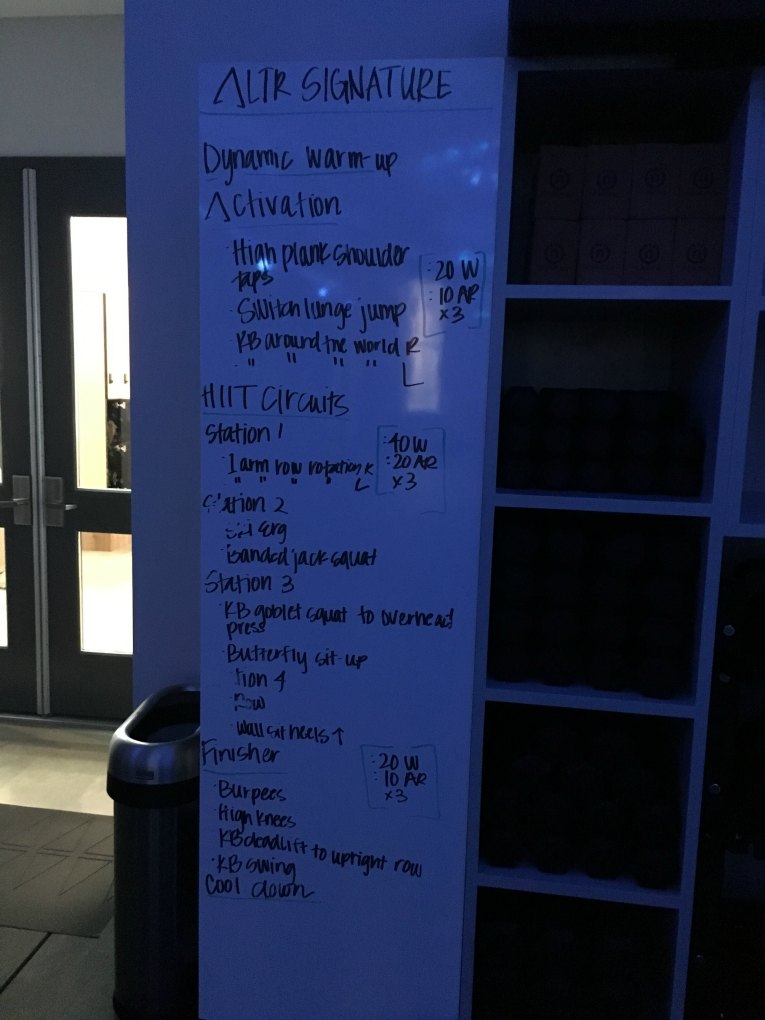 ALTR SIGNATURE
Dynamic warm-up
Activation
· High plank shoulder
taps
· Switch lunge jump
· KB around the world R
· " " " " L
:20 W
:10 AR
x3
HIIT Circuits
Station 1
· 1 arm row rotation R
" " " " L
:40 W
:20 AR
x3
Station 2
Erg
· Banded jack squat
Station 3
· KB goblet squat to overhead
press
· Butterfly sit-up
tion 4
· Wall sit heels ↑
Finisher
:20 W
:10 AR
x3
· Burpees
· High knees
· KB deadlift to upright row
· KB swing
Cool down